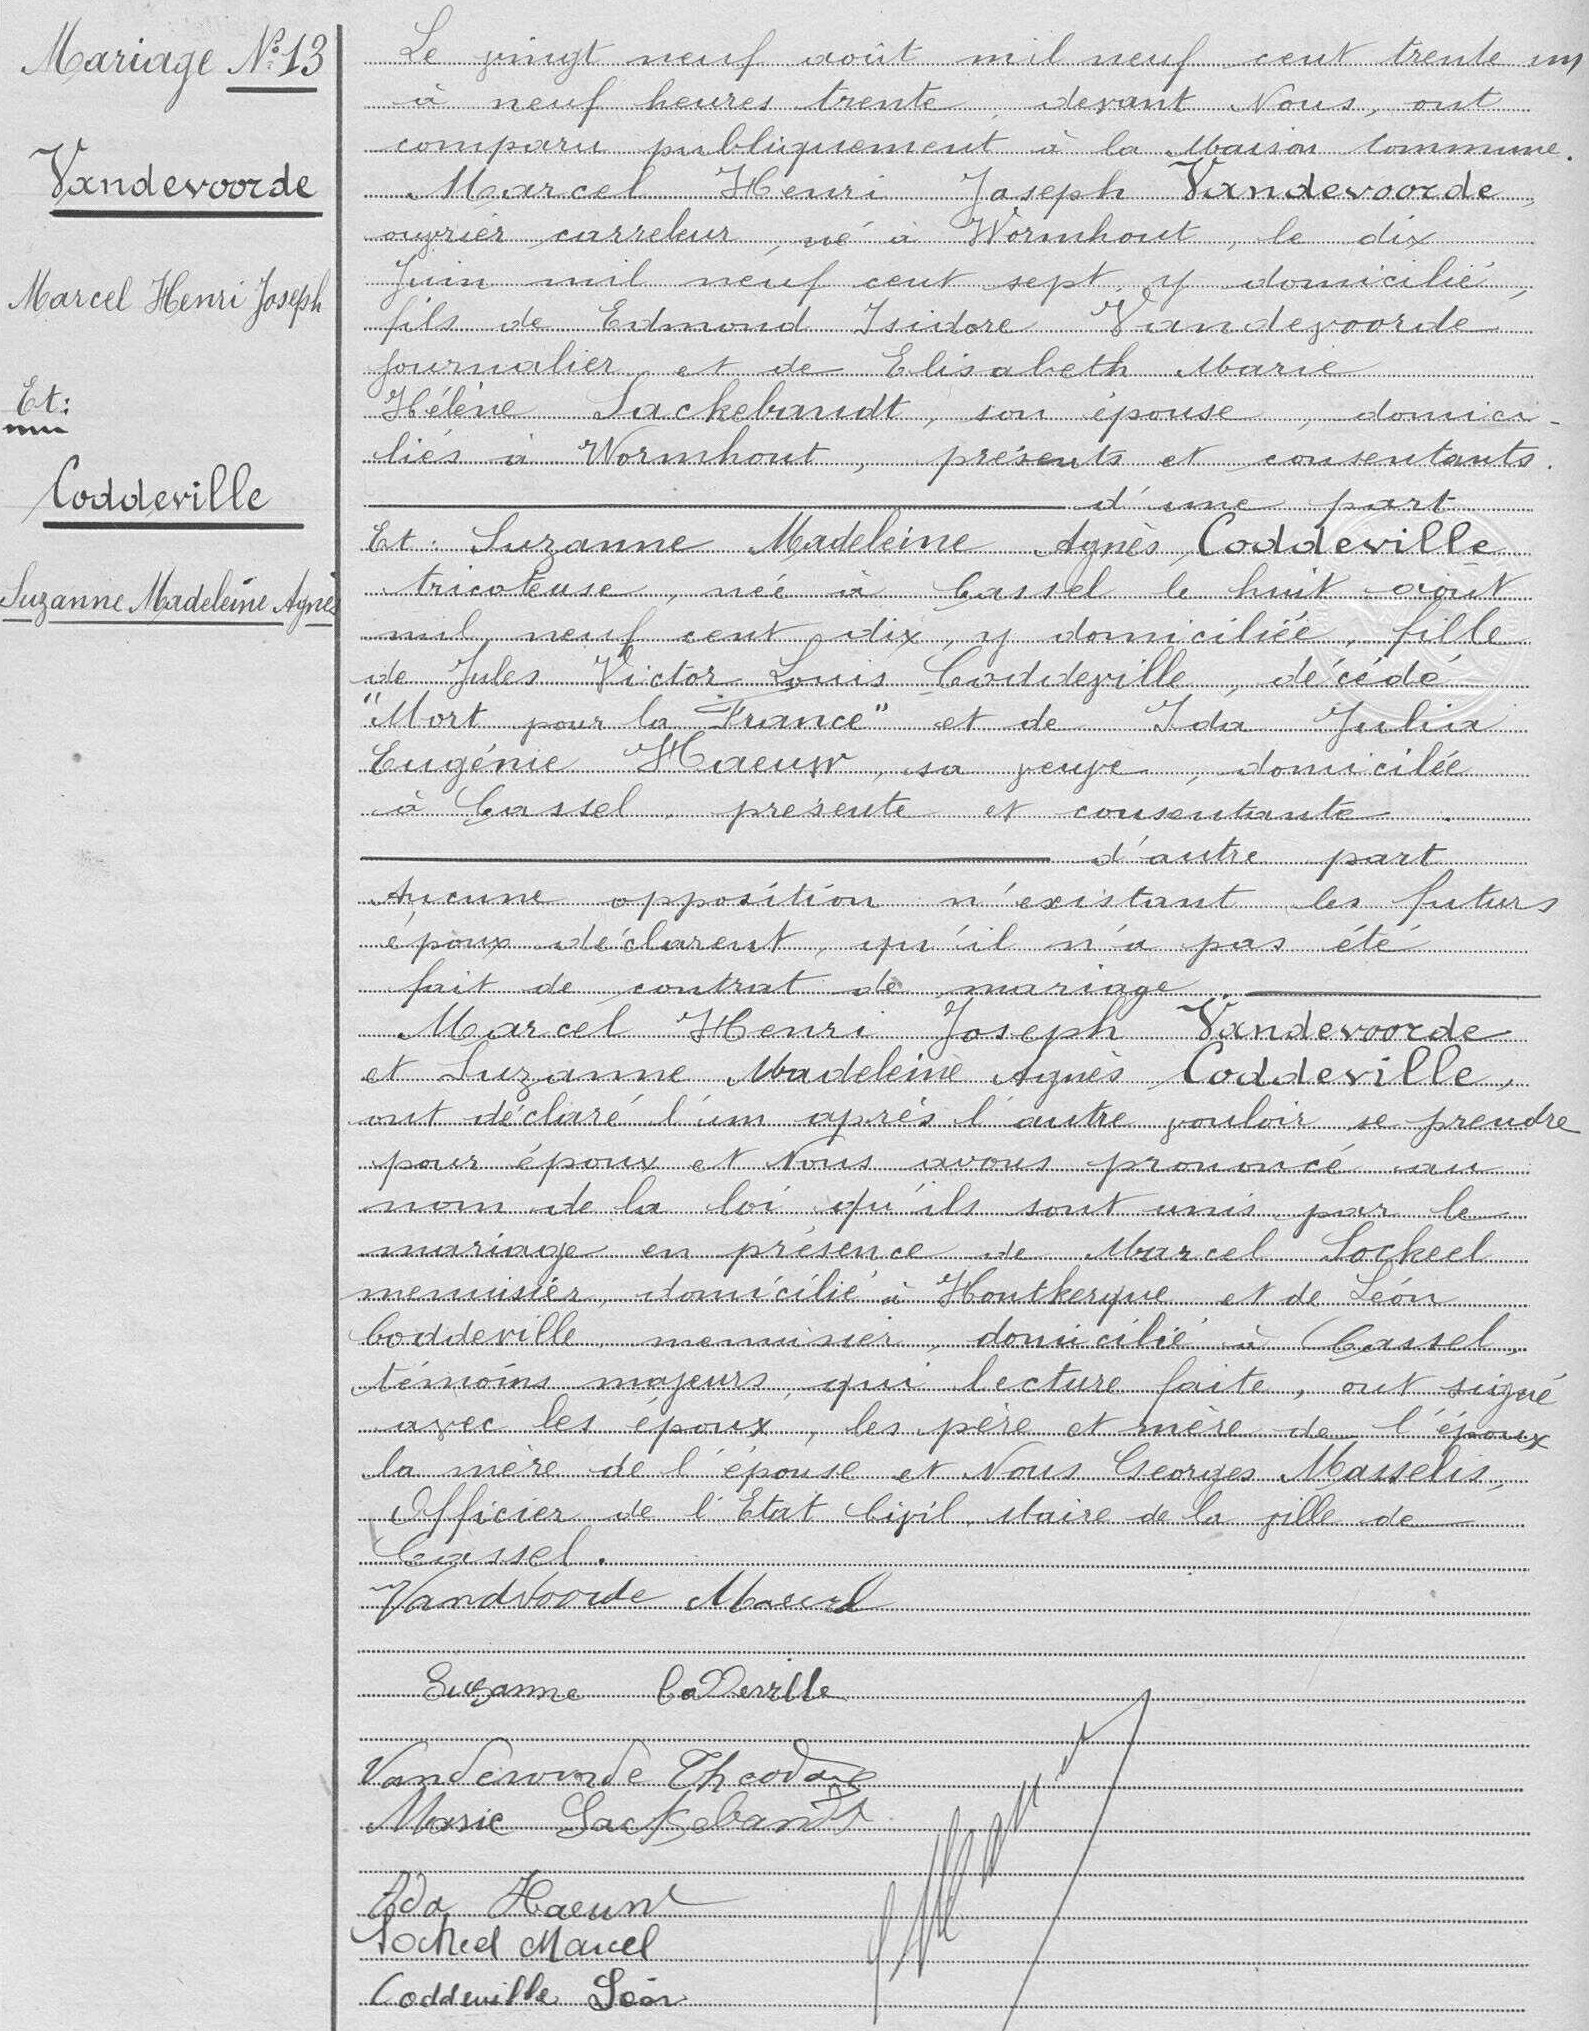 Mariage N° 13
Vandevoorde
Marcel Henri Joseph
Et:
Coddeville
Suzanne Madeleine Agnès
Le vingt neuf août mil neuf cent trente un
à neuf heures trente, devant Nous, ont
comparu publiquement à la Maison Commune.
Marcel Henri Joseph Vandevoorde,
ouvrier carreleur, né à Wormhout, le dix
Juin mil neuf cent sept, y domicilié,
fils de Edmond Isidore Vandevoorde
journalier et de Elisabeth Marie
Hélène Sackebandt, son épouse, domici-
liés à Wormhout, présents et consentants.
d'une part
Et. Suzanne Madeleine Agnès Coddeville
tricoteuse, née à Cassel le huit août
mil neuf cent dix, y domiciliée, fille
de Jules Victor Louis Coddeville, décédé
"Mort pour la France" et de Ida Julia
Eugénie Haeuw, sa veuve, domicilée
à Cassel, présente et consentante.
d'autre part
Aucune opposition n'existant les futurs
époux déclarent, qu'il n'a pas été
fait de contrat de mariage
Marcel Henri Joseph Vandevoorde
et Suzanne Madeleine Agnès Coddeville,
ont déclaré l'un après l'autre vouloir se prendre
pour époux et Nous avons prononcé au
nom de la loi qu'ils sont unis par le
mariage en présence de Marcel Sockeel
menuisier, domicilié à Houtkerque et de Léon
Coddeville, menuisier, domicilié à Cassel,
témoins majeurs, qui lecture faite, ont signé
avec les époux, les père et mère de l'époux
la mère de l'épouse et Nous Georges Masselis,
Officier de l'Etat Civil, Maire de la ville de
Cassel.
Vandvoorde Marcel
Suzanne Coddeville
Vandevoorde
Marie Sackebandt
Ida Haeuw
Sockeel Marcel
Coddeville Léon